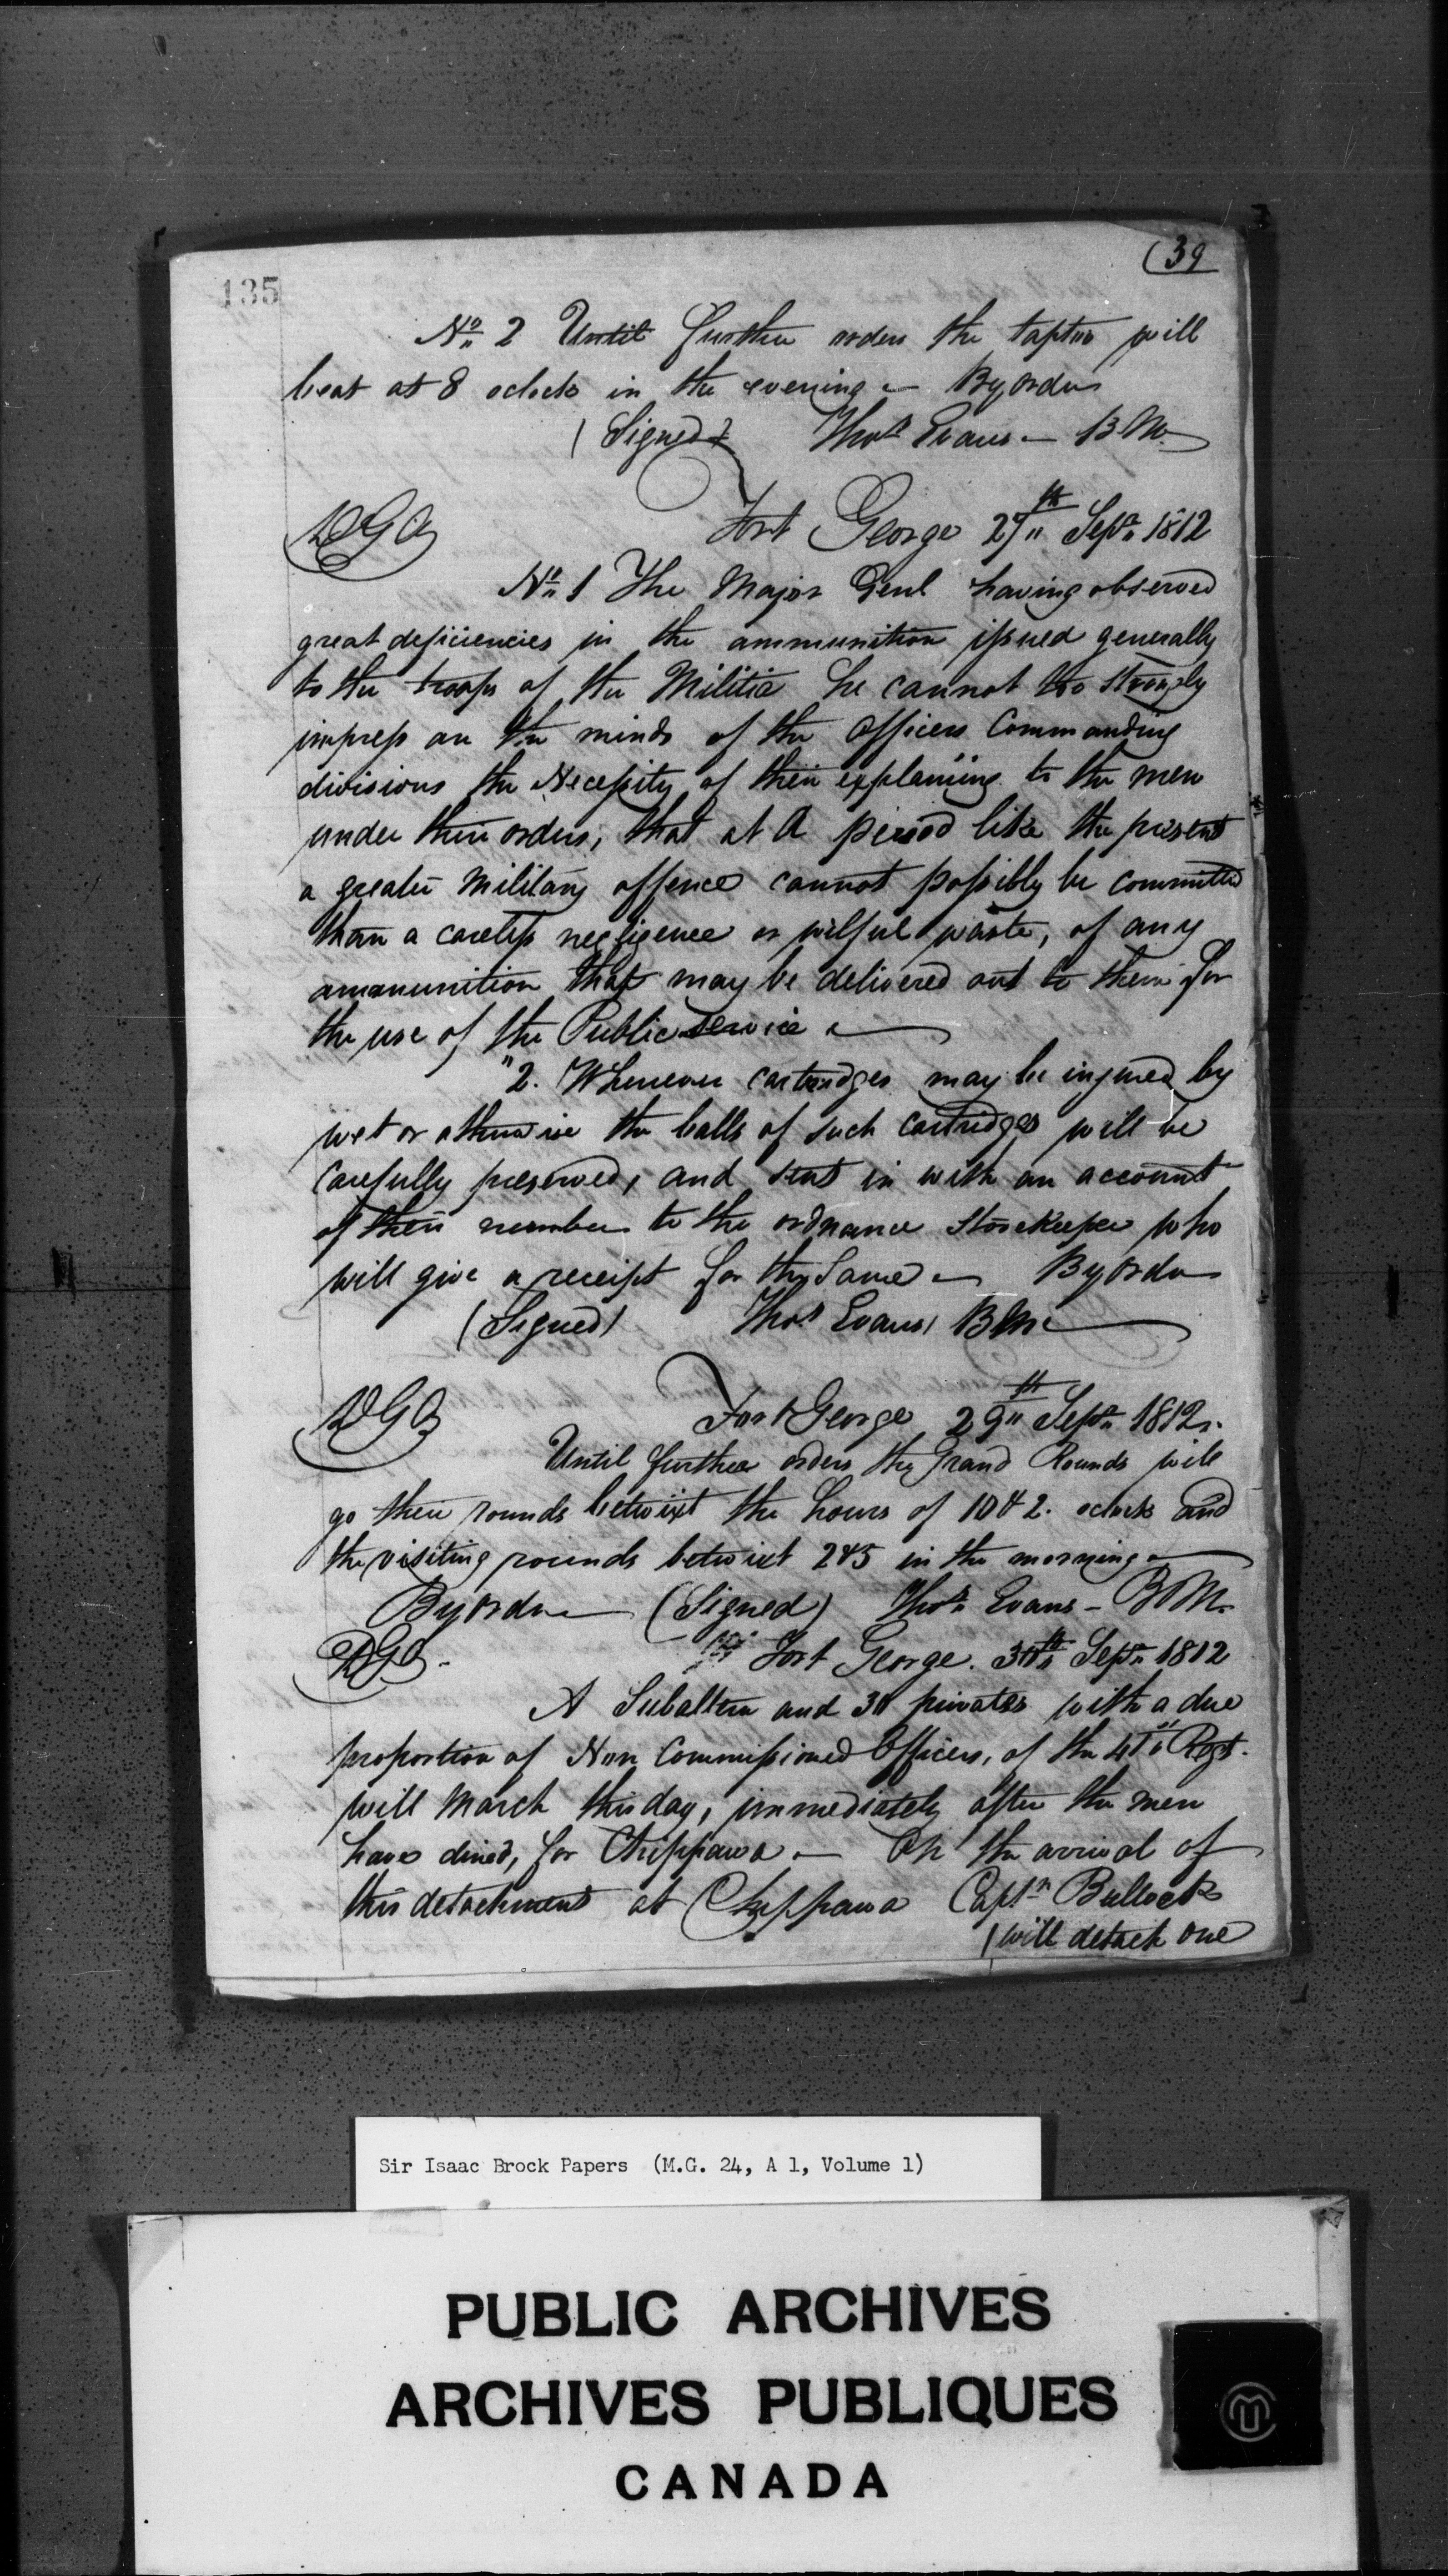 135
(39
No 2 Until further orders the taptoo will
beat at 8 oclock in the evening — By order
(Signed) Thos Evans — B M.
DGO
Fort George 27th Sepr 1812
No 1 The Major Genl having observed
great deficiencies in the ammunition issued generally
to the troops of the Militia he cannot too strongly
impress on the minds of the officers Commanding
divisions the Necessity of their explaining to the men
under their orders, that at a period like the present
a greater Military offence cannot possibly be committed
than a careless negligence or wilful waste, of any
ammunition that may be delivered out to them for
the use of the Public Service —
"2. Whenever cartridges may be injured by
wet or otherwise the balls of such cartridges will be
carefully preserved, and sent in with an account
of their number to the ordnance Storekeeper who
will give a receipt for the Same — By order
(Signed) Thos Evans, BM
DGO
Fort George 29th Sepr 1812.
Until further orders the Grand Rounds will
go their rounds betwixt the hours of 10 & 2. oclock and
the visiting rounds betwixt 2 & 5 in the morning —
By order — (Signed) Thos Evans — B M.
DGO.
Fort George. 30th Sepr 1812
A Subaltern and 30 privates with a due
proportion of Non Commissioned Officers, of the 41st Regt.
will March this day, immediately after the men
have dined, for Chippawa — On the arrival of
this detachment at Chippawa Captn Bullock
(will detach one
Sir Isaac Brock Papers (M.G. 24, A 1, Volume 1)
PUBLIC ARCHIVES
ARCHIVES PUBLIQUES
CANADA